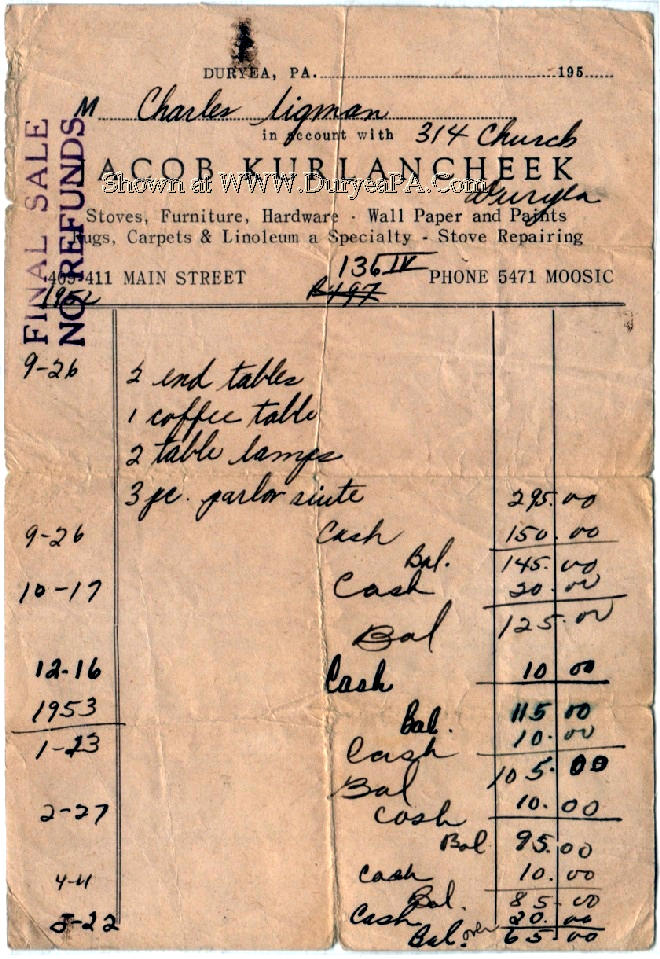 DURYEA, PA. 195
M Charles Sigman
in account with 314 Church
JACOB KURLANCHEEK
Shown at WWW.DuryeaPA.Com
Duryea
Stoves, Furniture, Hardware - Wall Paper and Paints
Rugs, Carpets & Linoleum a Specialty - Stove Repairing
136 IV
409-411 MAIN STREET PHONE 5471 MOOSIC
1952 R497
FINAL SALE
NO REFUNDS
9-26 2 end tables
1 coffee table
2 table lamps
3 pc. parlor suite 295.00
9-26 Cash 150.00
Bal. 145.00
10-17 Cash 20.00
Bal 125.00
12-16 Cash 10 00
1953 Bal. 115 00
1-23 Cash 10.00
Bal 105.00
2-27 Cash 10.00
Bal 95.00
4-4 Cash 10.00
Bal. 85.00
5-22 Cash 20.00
Bal. over 65.00